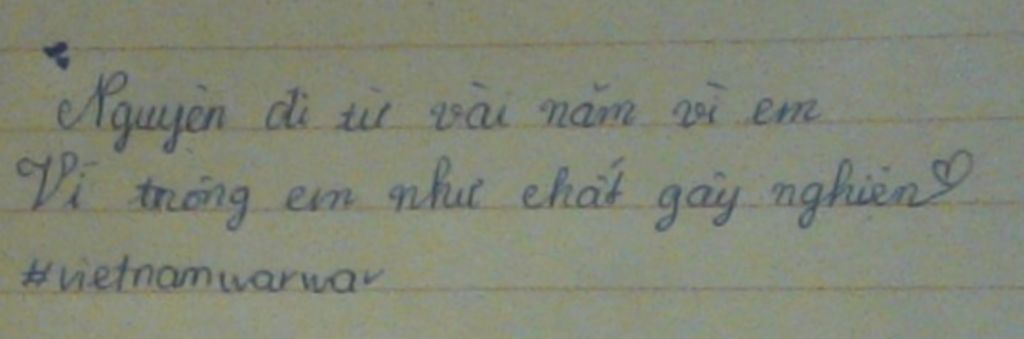 Nguyện đi tù vài năm vì em
Vì trông em như chất gây nghiện
#vietnamwarwar